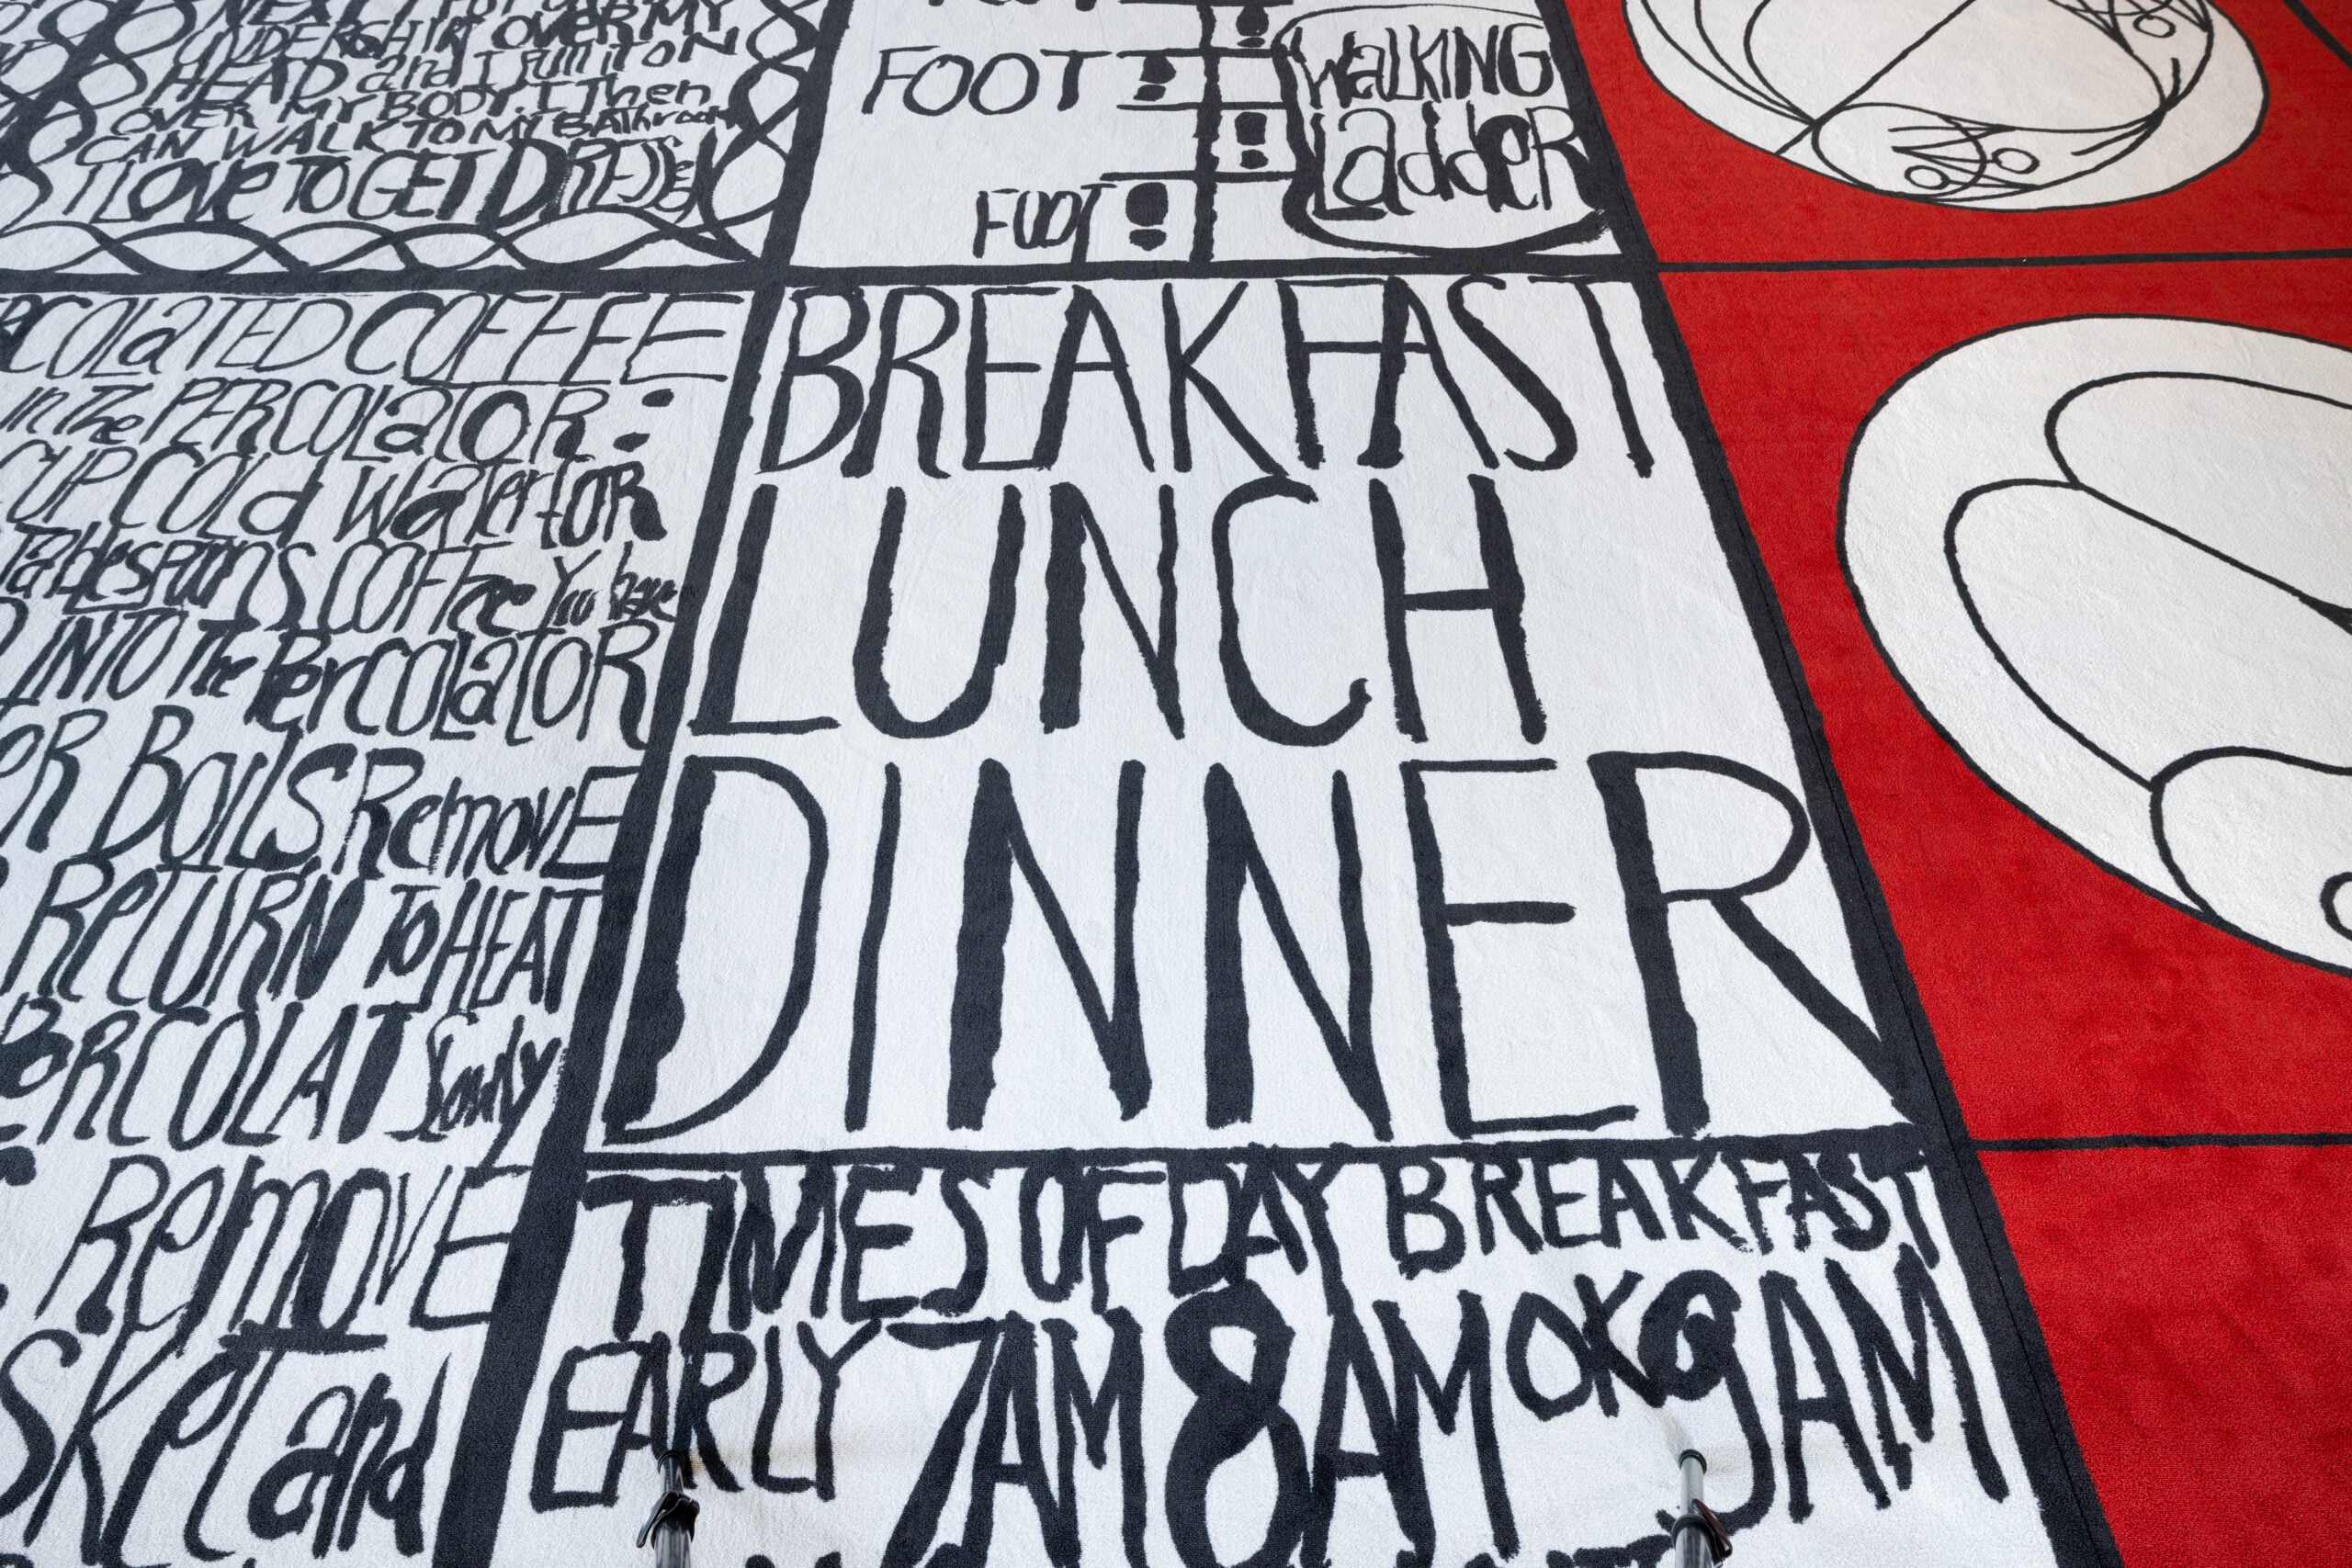 UNDERSHIRT OVER MY
HEAD and I Pull iT ON
OVER MY BODY. I Then
CAN WALK TO MY BATHroom
I LOVE TO GET DRESSED
FOOT
FOOT
WaLKING
LaddeR
COLaTED COFFEE
in The PERCOLaTOR:
CUP COLd WaTer foR
TablespoonS COFFee You have
INTO The PerCOLaToR
OR BoiLS RemovE
ReTURN To HEAT
PeRCOLAT Slowly
RemovE
SKeT and
BREAKFAST
LUNCH
DINNER
TIMES OF DAY BREAKFAST
EARLY 7AM 8AM OK 9AM